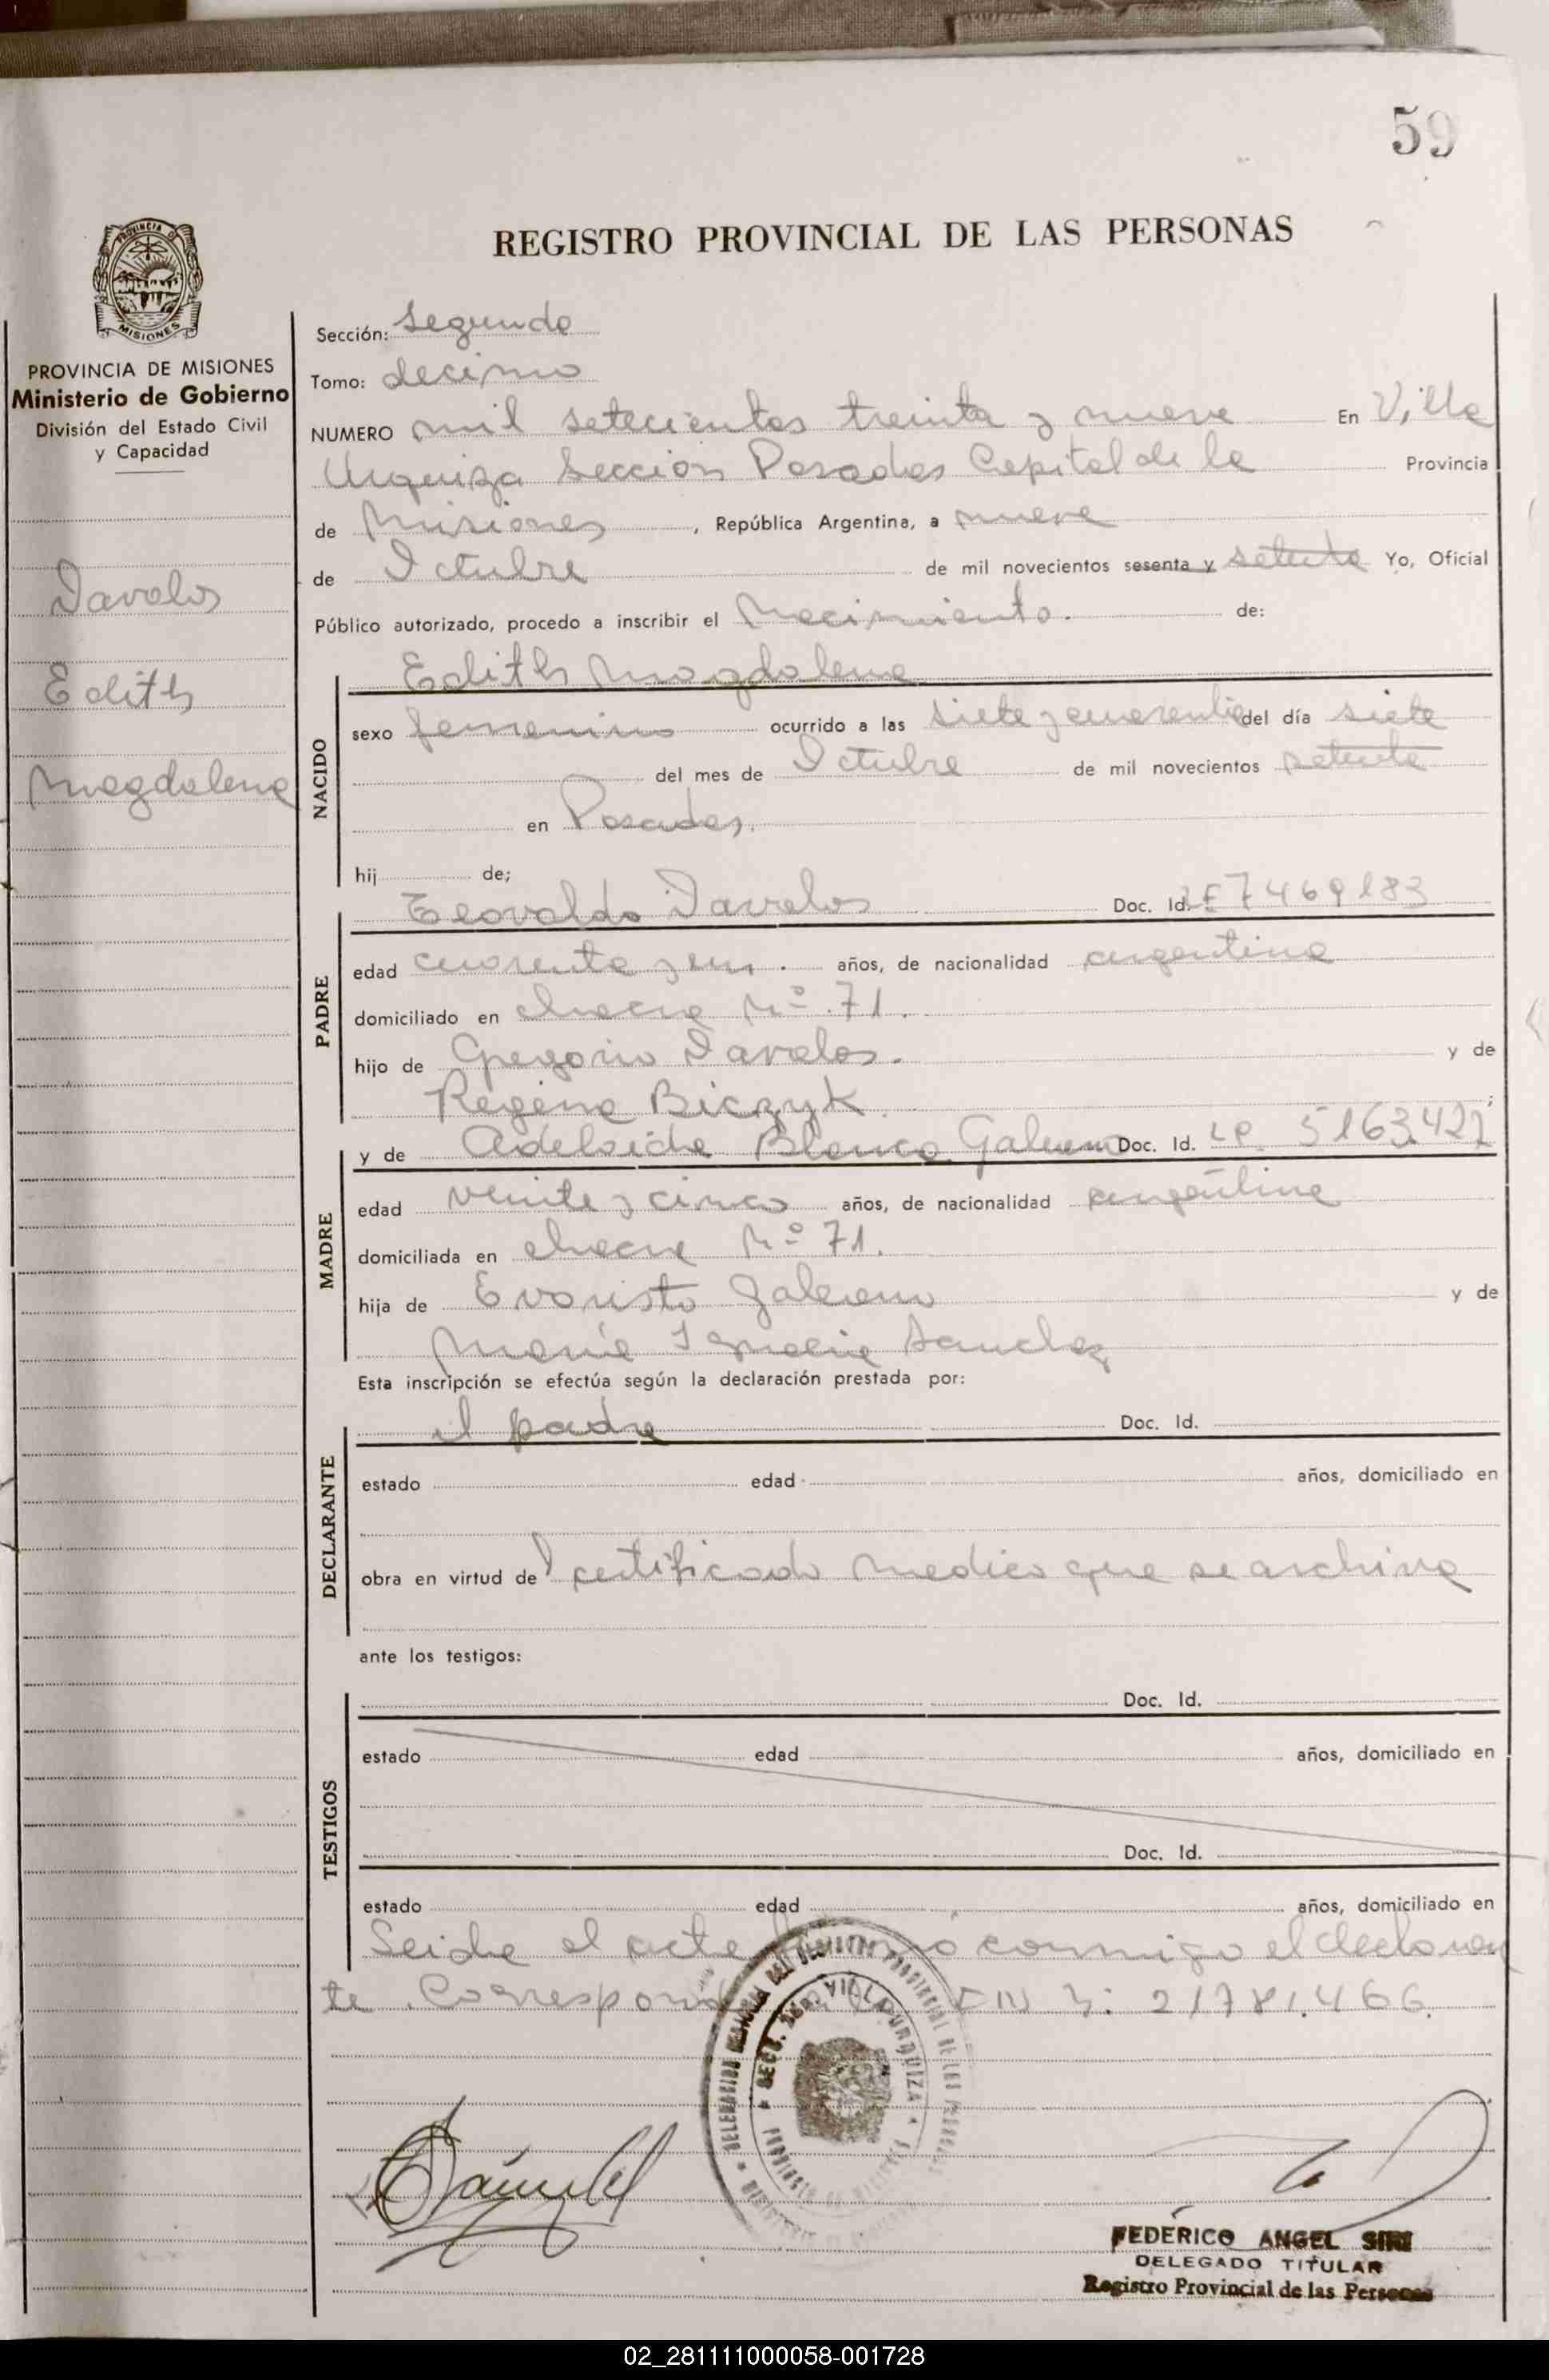 59
PROVINCIA DE
MISIONES
REGISTRO PROVINCIAL DE LAS PERSONAS
PROVINCIA DE MISIONES
Ministerio de Gobierno
División del Estado Civil
y Capacidad
Davalos
Edith
Magdalena
Sección: Segunda
Tomo: decimo
NUMERO mil setecientos treinta y nueve En Villa
Urquiza Seccion Posadas Capital de la Provincia
de Misiones, República Argentina, a nueve
de Octubre de mil novecientos sesenta y setenta Yo, Oficial
Público autorizado, procedo a inscribir el Nacimiento. de:
NACIDO
Edith Magdalena
sexo femenino ocurrido a las siete y cuarenta del día siete
del mes de Octubre de mil novecientos setenta
en Posadas.
hij de;
PADRE
Teovaldo Davalos Doc. Id. LE 7469183
edad cuarenta y un. años, de nacionalidad argentina
domiciliado en chacra Nº. 71.
hijo de Gregorio Davalos. y de
Regina Biczyk.
y de Adelaida Blanca Galeano Doc. Id. LC 5163422
MADRE
edad veinte y cinco años, de nacionalidad argentina
domiciliada en chacra Nº 71.
hija de Evaristo Galeano y de
Maria Ignacia Sanchez
Esta inscripción se efectúa según la declaración prestada por:
DECLARANTE
el padre Doc. Id.
estado edad años, domiciliado en
obra en virtud del certificado medico que se archiva
ante los testigos:
TESTIGOS
Doc. Id.
estado edad años, domiciliado en
Doc. Id.
estado edad años, domiciliado en
Leida el acta firmó conmigo el declaran
te. Corresponde 21781.466.
SECC. VILLA URQUIZA
FEDERICO ANGEL SIRI
DELEGADO TITULAR
Registro Provincial de las Personas
02_281111000058-001728